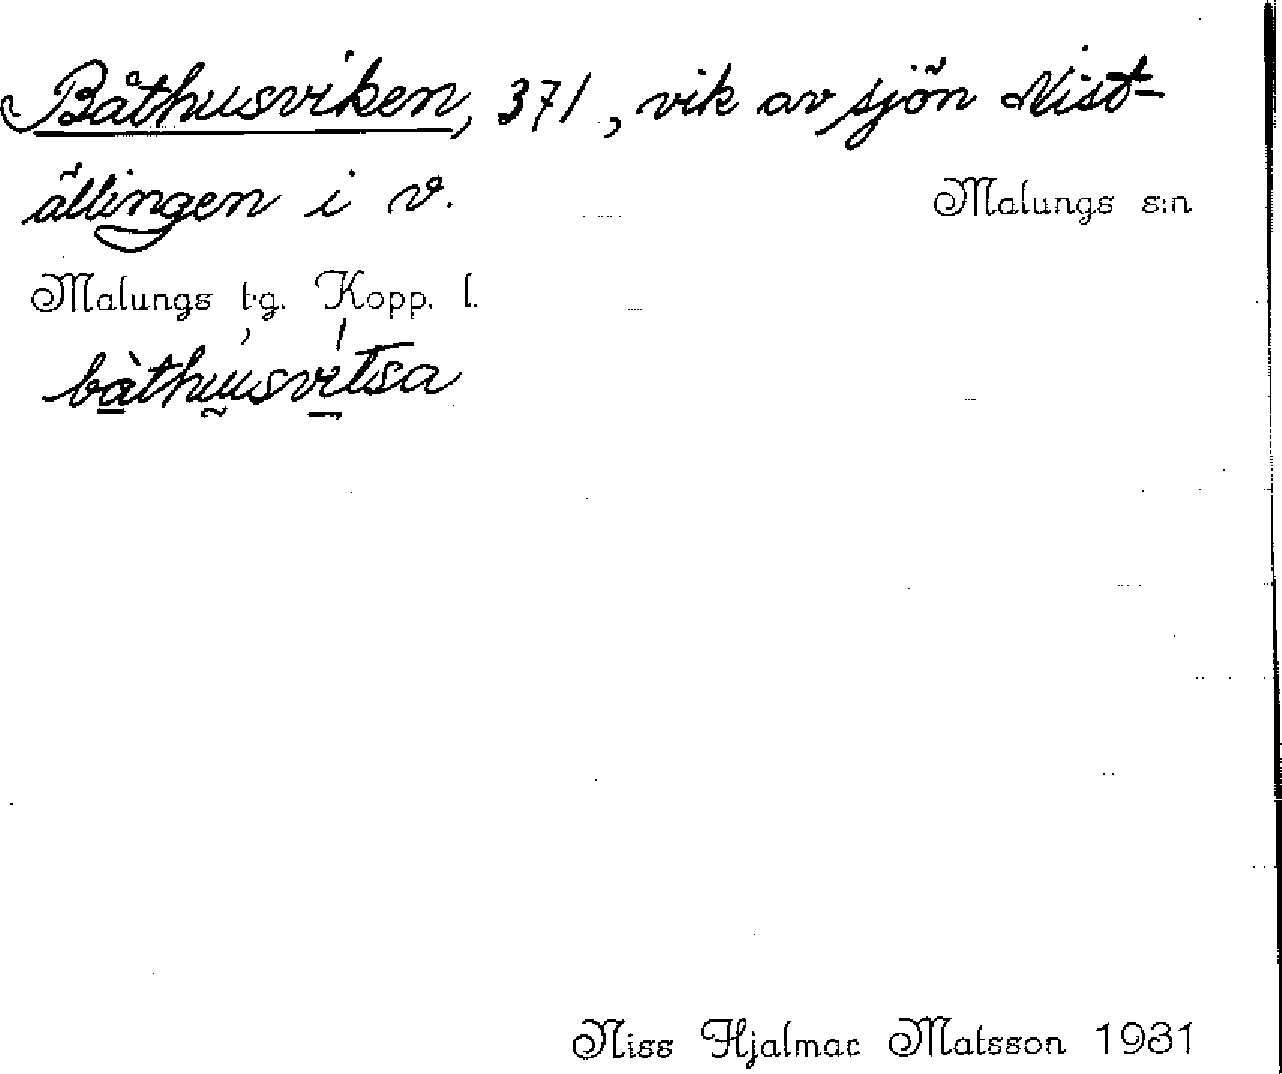 Båthusviken, 371, vik av sjön Nist-
ällingen i v.
Malungs s:n
Malungs t·g. Kopp. l.
båthusvitsa
Niss Hjalmar Matsson 1931